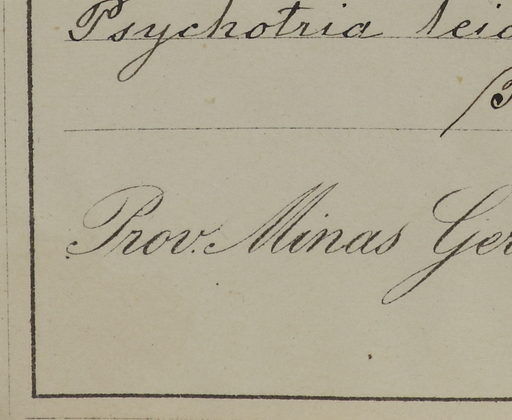 Psychotria leio
Prov. Minas Ger